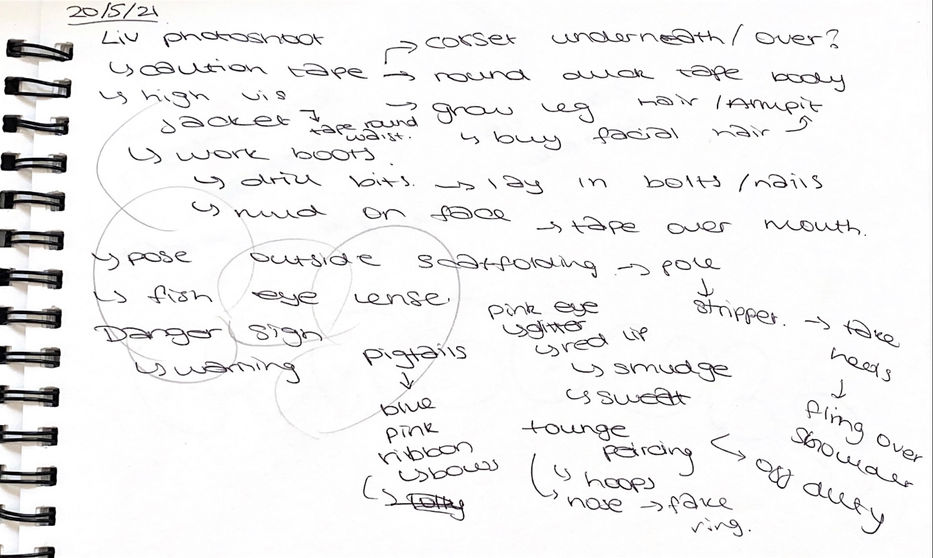 20/5/21
Liv photoshoot → corset underneath / over?
↳ caution tape → round duck tape body
↳ high vis → grow leg hair / Armpit
Jacket → tape round waist. ↳ buy facial hair
↳ work boots.
↳ drill bits. → lay in bolts / nails
↳ mud on face → tape over mouth.
↳ pose outside scaffolding → pole
↳ fish eye lense
↓
stripper. → take
heels
↓
fling over
shoulder
Danger sign
↳ warning
pink eye
↳ glitter
↳ red lip
↳ smudge
↳ sweat
pigtails
↓
blue
pink
ribbon
↳ bows
tounge
peircing
↳ hoops
↳ nose → fake
ring.
off duty